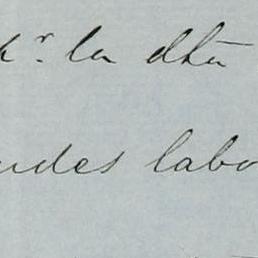 r. la dha
udes labo